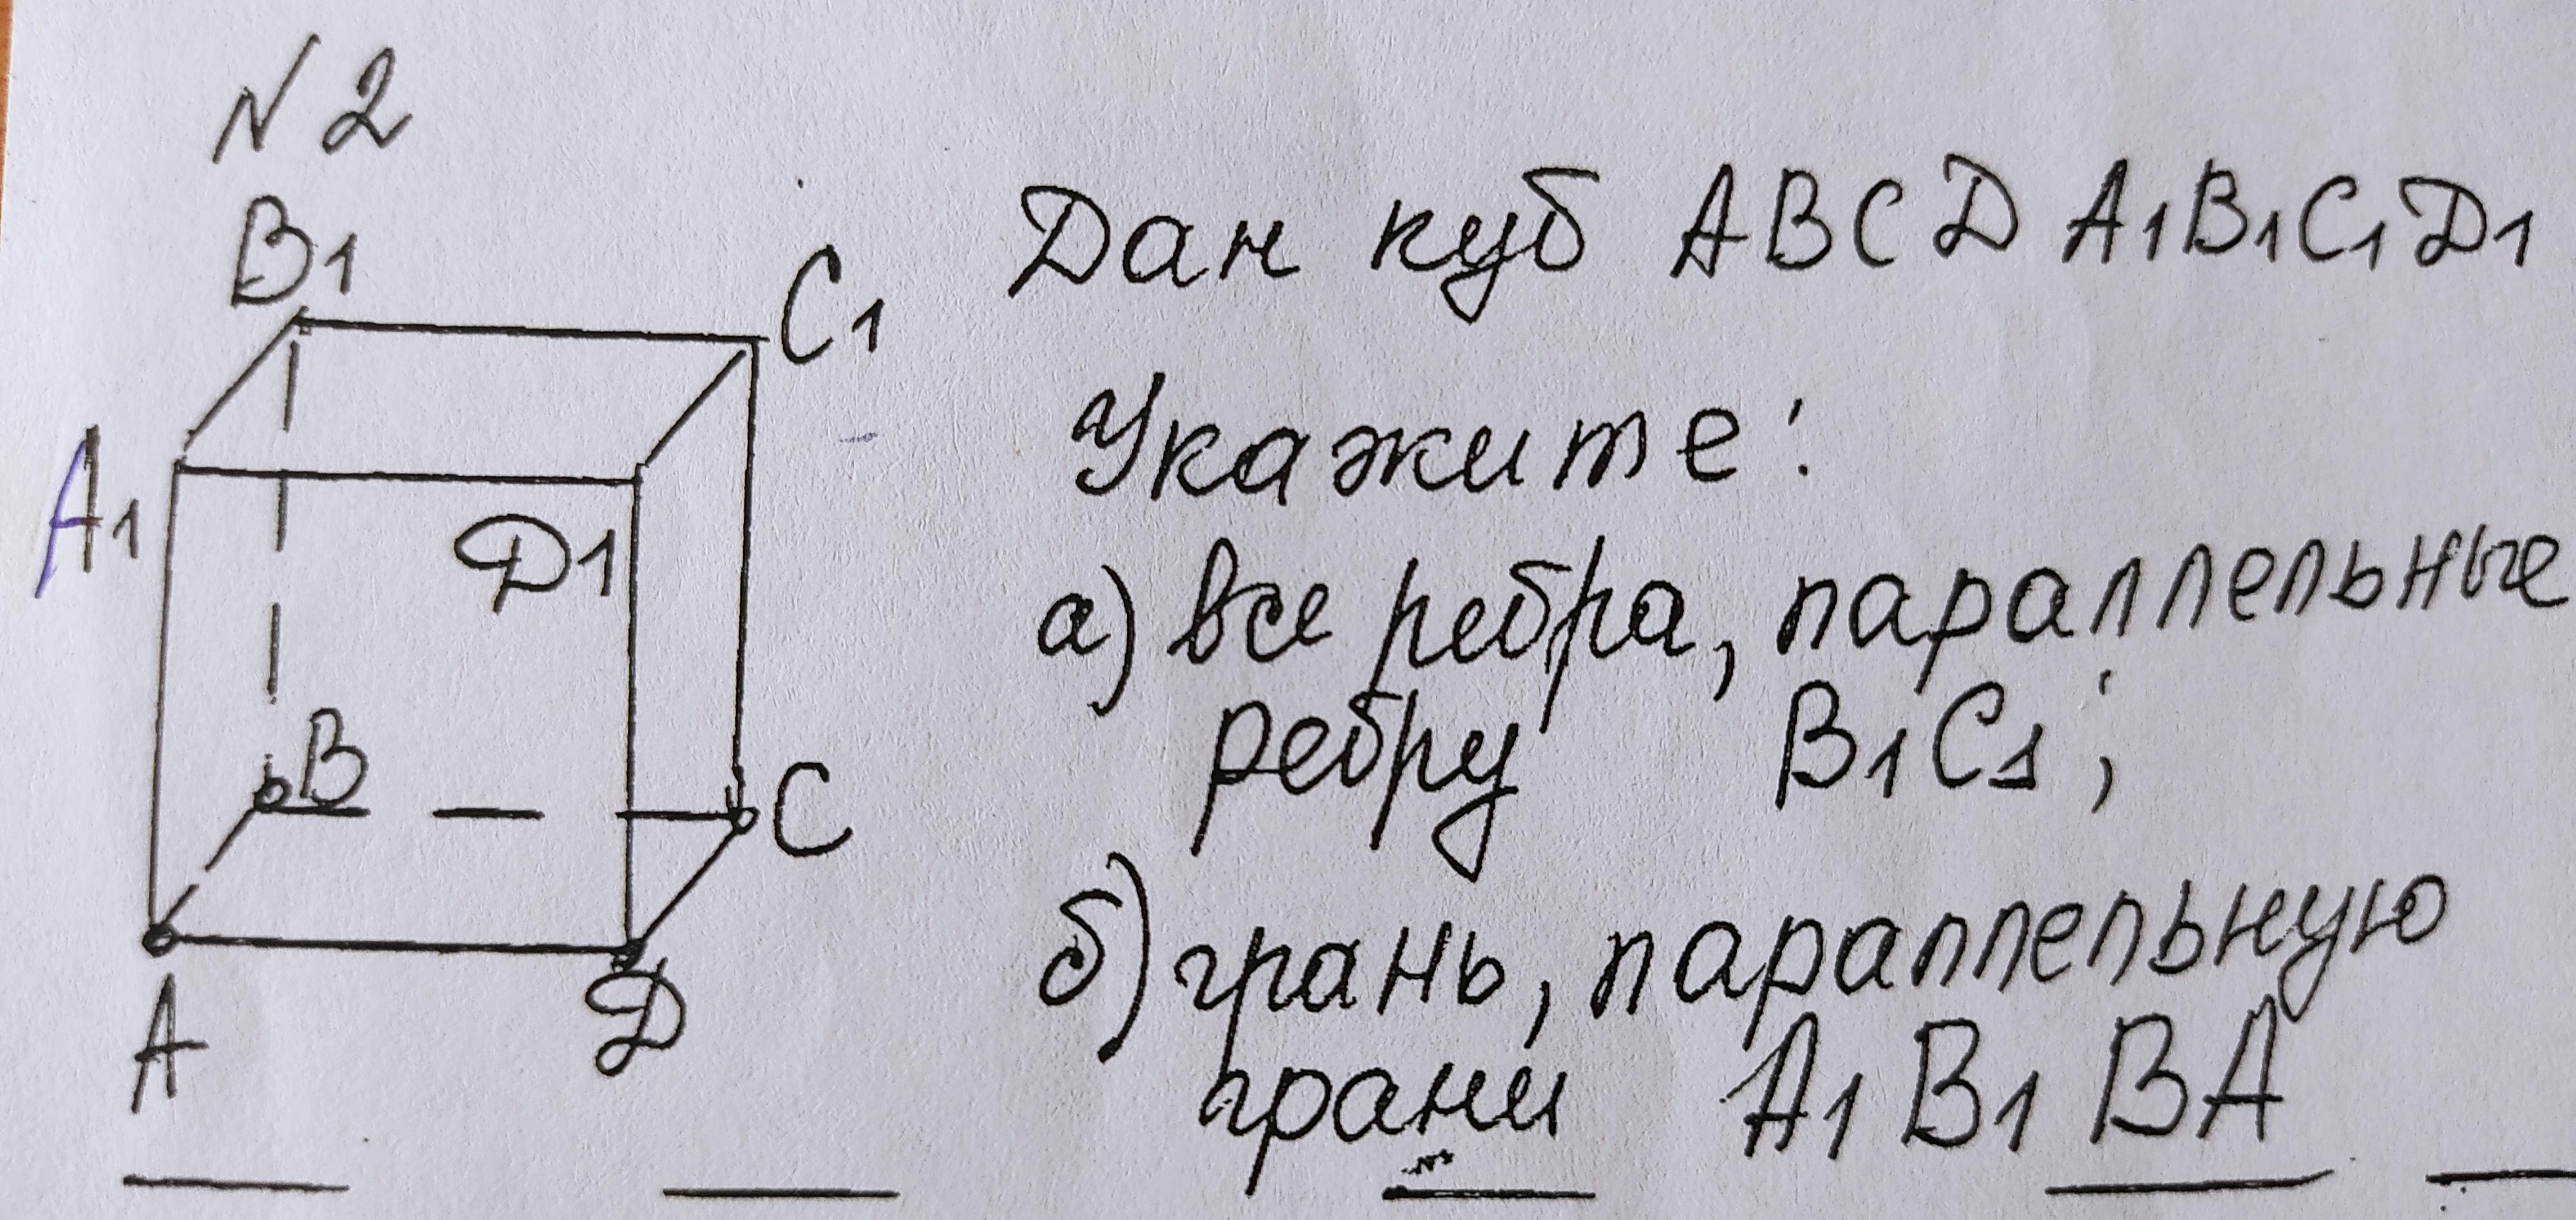 N 2
B1
C1
A1
D1
B
C
A
D
Дан куб ABCD A1B1C1D1
Укажите:
а) все ребра, параллельные
ребру B1C1;
б) грань, параллельную
грани A1B1BA